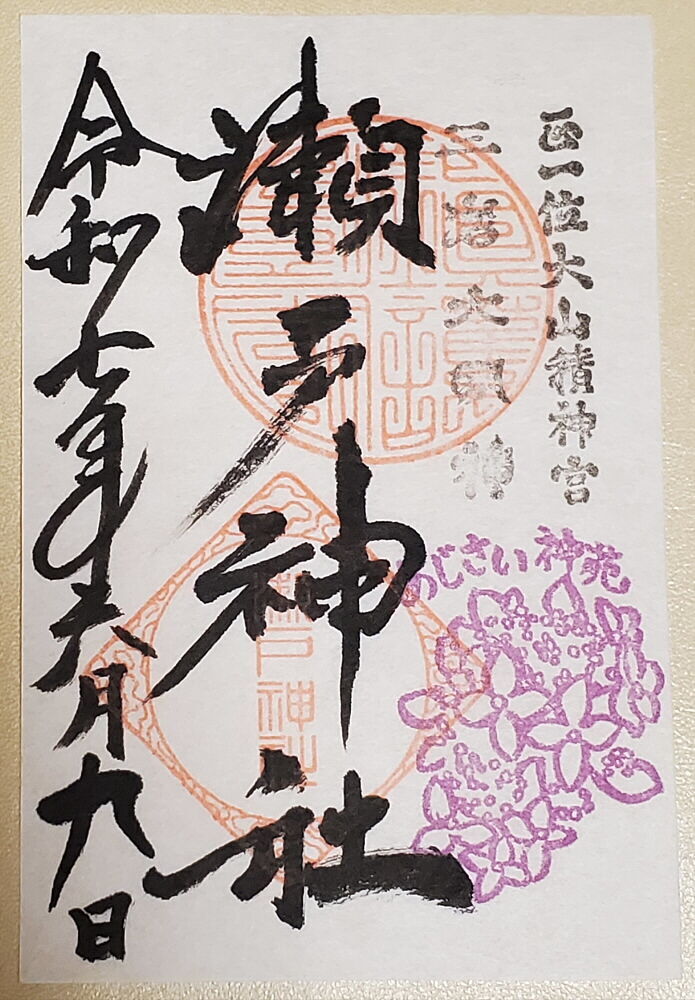 正一位大山積神宮
三島大明神
あじさい神苑
瀬戸神社
瀬戸神社
令和七年六月九日